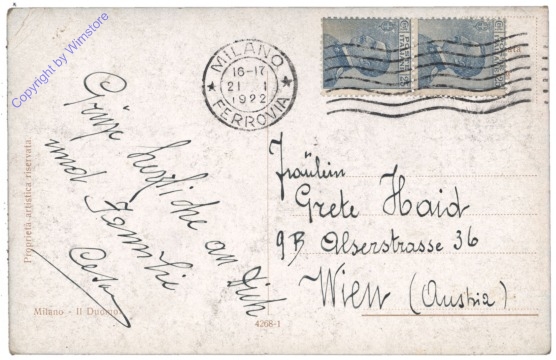 Copyright by Wimstore
MILANO
16-17
21 1
1922
FERROVIA
Grüße herzliche an Dich
und Familie
Fräulein
Grete Haid
9B Alserstrasse 36
Wien (Austria)
Proprietà artistica riservata
Milano - Il Duomo
4268-1